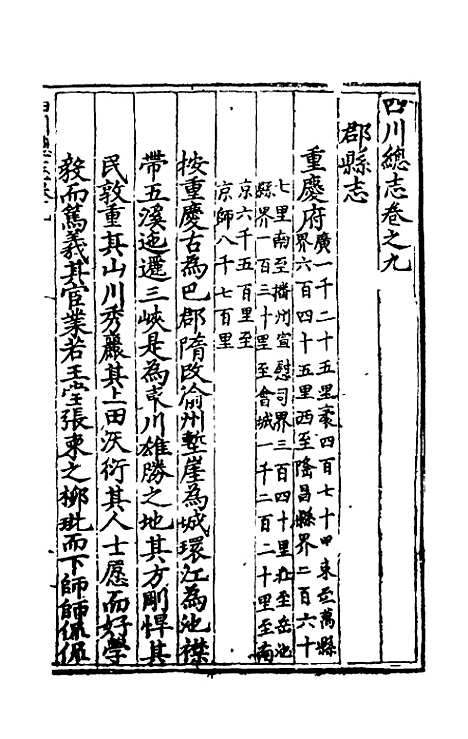 四川總志卷之九
郡縣志
重慶府廣一千二十五里袤四百七十里東至萬縣
界六百四十五里西至隆昌縣界二百六十
七里南至播州宣慰司界三百四十里北至岳池
縣界一百三十里至會城一千二百二十里至南
京六千五百里至
京師八千七百里
按重慶古為巴郡隋改渝州塹崖為城環江為池襟
帶五溪迤邐三峽是為東川雄勝之地其方剛悍其
民敦重其山川秀麗其土田沃衍其人士愿而好學
毅而篤義其官業若王堂張柬之柳玭而下師師侃侃